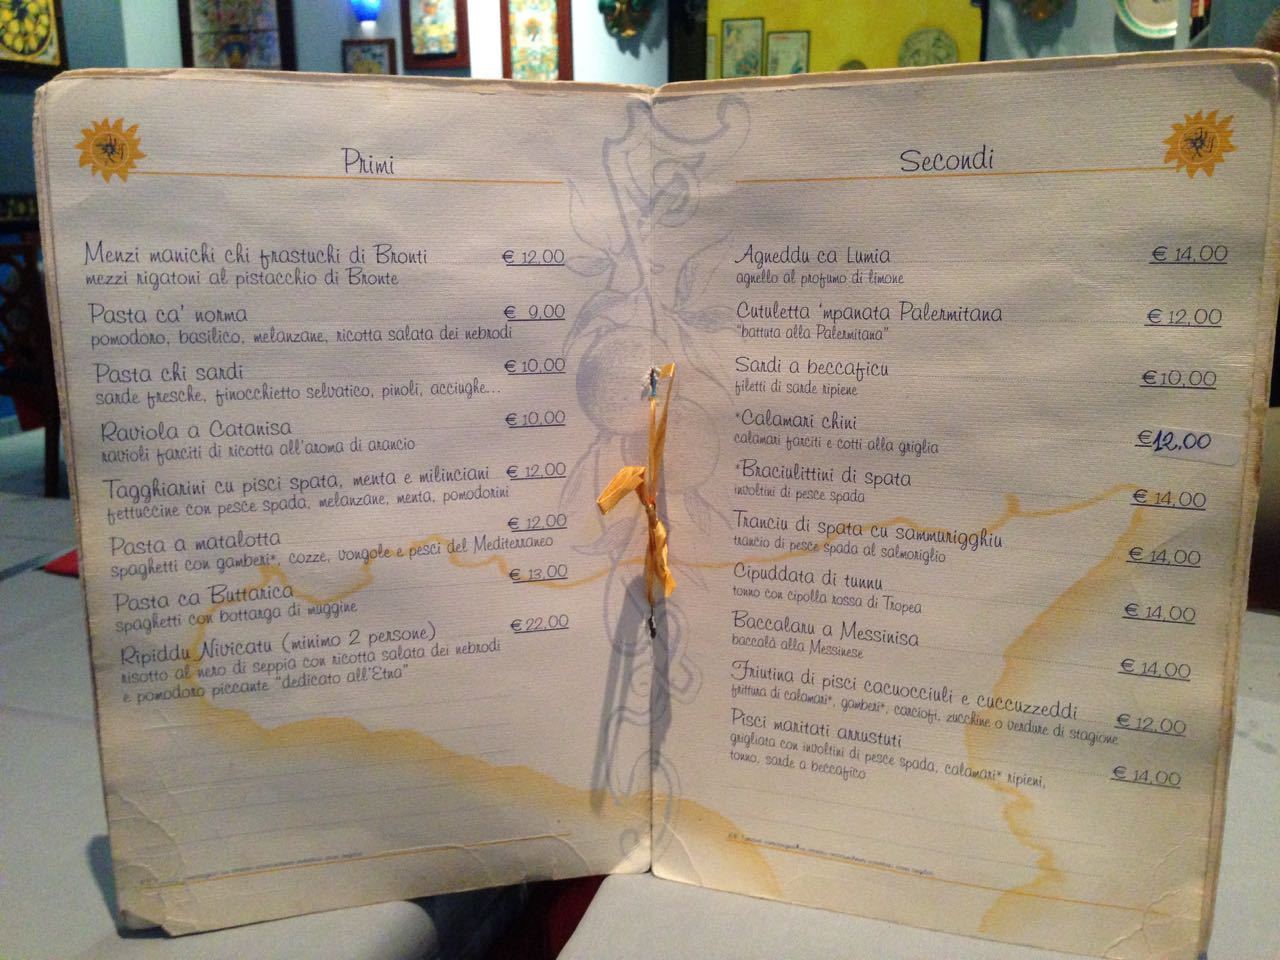 Primi
Menzi manichi chi frastuchi di Bronti € 12,00
mezzi rigatoni al pistacchio di Bronte
Pasta ca' norma € 9,00
pomodoro, basilico, melanzane, ricotta salata dei nebrodi
Pasta chi sardi € 10,00
sarde fresche, finocchietto selvatico, pinoli, acciughe...
Raviola a Catanisa € 10,00
ravioli farciti di ricotta all'aroma di arancio
Tagghiarini cu pisci spata, menta e milinciani € 12,00
fettuccine con pesce spada, melanzane, menta, pomodorini
Pasta a matalotta € 12,00
spaghetti con gamberi*, cozze, vongole e pesci del Mediterraneo
Pasta ca Buttarica € 13,00
spaghetti con bottarga di muggine
Ripiddu Nivicatu (minimo 2 persone) € 22,00
risotto al nero di seppia con ricotta salata dei nebrodi
e pomodoro piccante "dedicato all'Etna"
Secondi
Agneddu ca Lumia € 14,00
agnello al profumo di limone
Cutuletta 'mpanata Palermitana € 12,00
"battuta alla Palermitana"
Sardi a beccaficu € 10,00
filetti di sarde ripiene
*Calamari chini € 12,00
calamari farciti e cotti alla griglia
*Braciulittini di spata € 14,00
involtini di pesce spada
Tranciu di spata cu sammurigghiu € 14,00
trancio di pesce spada al salmoriglio
Cipuddata di tunnu € 14,00
tonno con cipolla rossa di Tropea
Baccalaru a Messinisa € 14,00
baccalà alla Messinese
Friutina di pisci cacuocciuli e cuccuzzeddi € 12,00
frittura di calamari*, gamberi*, carciofi, zucchine o verdure di stagione
Pisci maritati arrustuti € 14,00
grigliata con involtini di pesce spada, calamari* ripieni,
tonno, sarde a beccafico